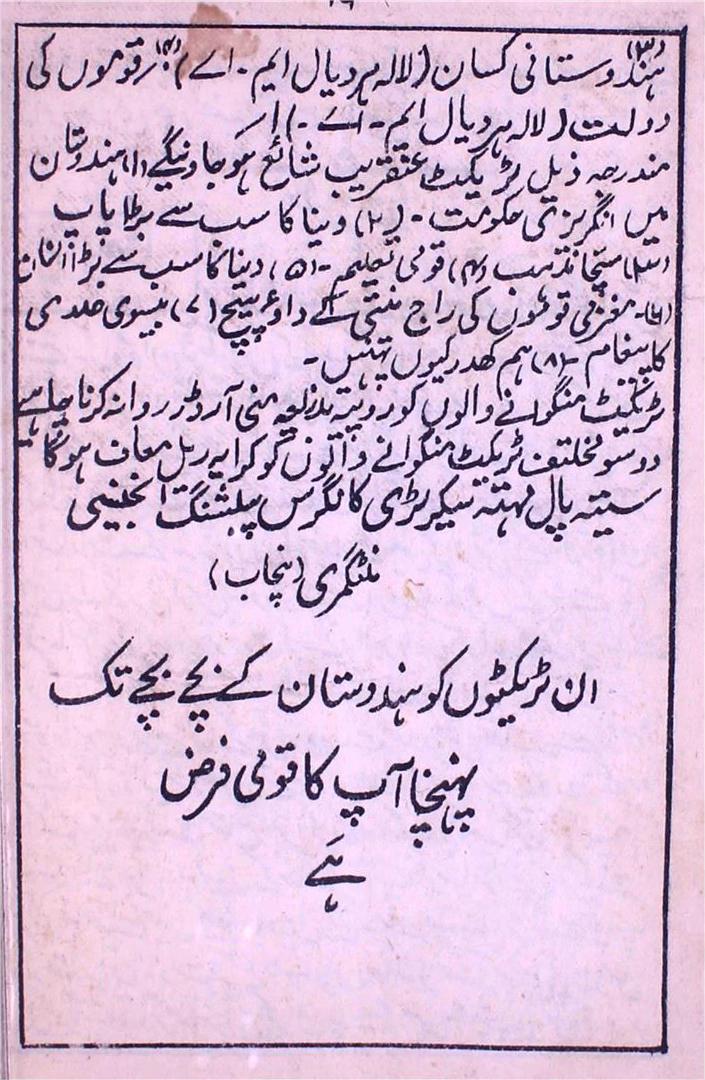 (۳) ہندوستانی کسان (لالہ ہردیال ایم۔اے) (۴) قوموں کی
دولت (لالہ ہردیال ایم۔اے۔) ار
مندرجہ ذیل ٹریکٹ عنقریب شائع ہو جاوینگے (۱) ہندوستان
میں انگریزی حکومت۔ (۲) دینا کا سب سے بڑا پاپ
(۳) سچا مذہب (۴) قومی تعلیم۔ (۵) دینا کا سب سے بڑا انسان
(۶)۔ مغربی قوموں کی راج نیتی کے داؤ پیچ (۷) بیسوی صدی
کا پیغام۔ (۸) ہم کھدر کیوں پہنیں۔
ٹریکٹ منگوانے والوں کو روپیہ بذریعہ منی آرڈر روانہ کرنا چاہیے
دو سو مختلف ٹریکٹ منگوانے والوں کو کرایہ ریل معاف ہوگا
ستیہ پال مہتہ سیکرٹری کانگرس پبلشنگ ایجنسی
منٹگمری (پنجاب)
ان ٹریکٹوں کو ہندوستان کے بچے بچے تک
پہنچانا آپ کا قومی فرض
ہے